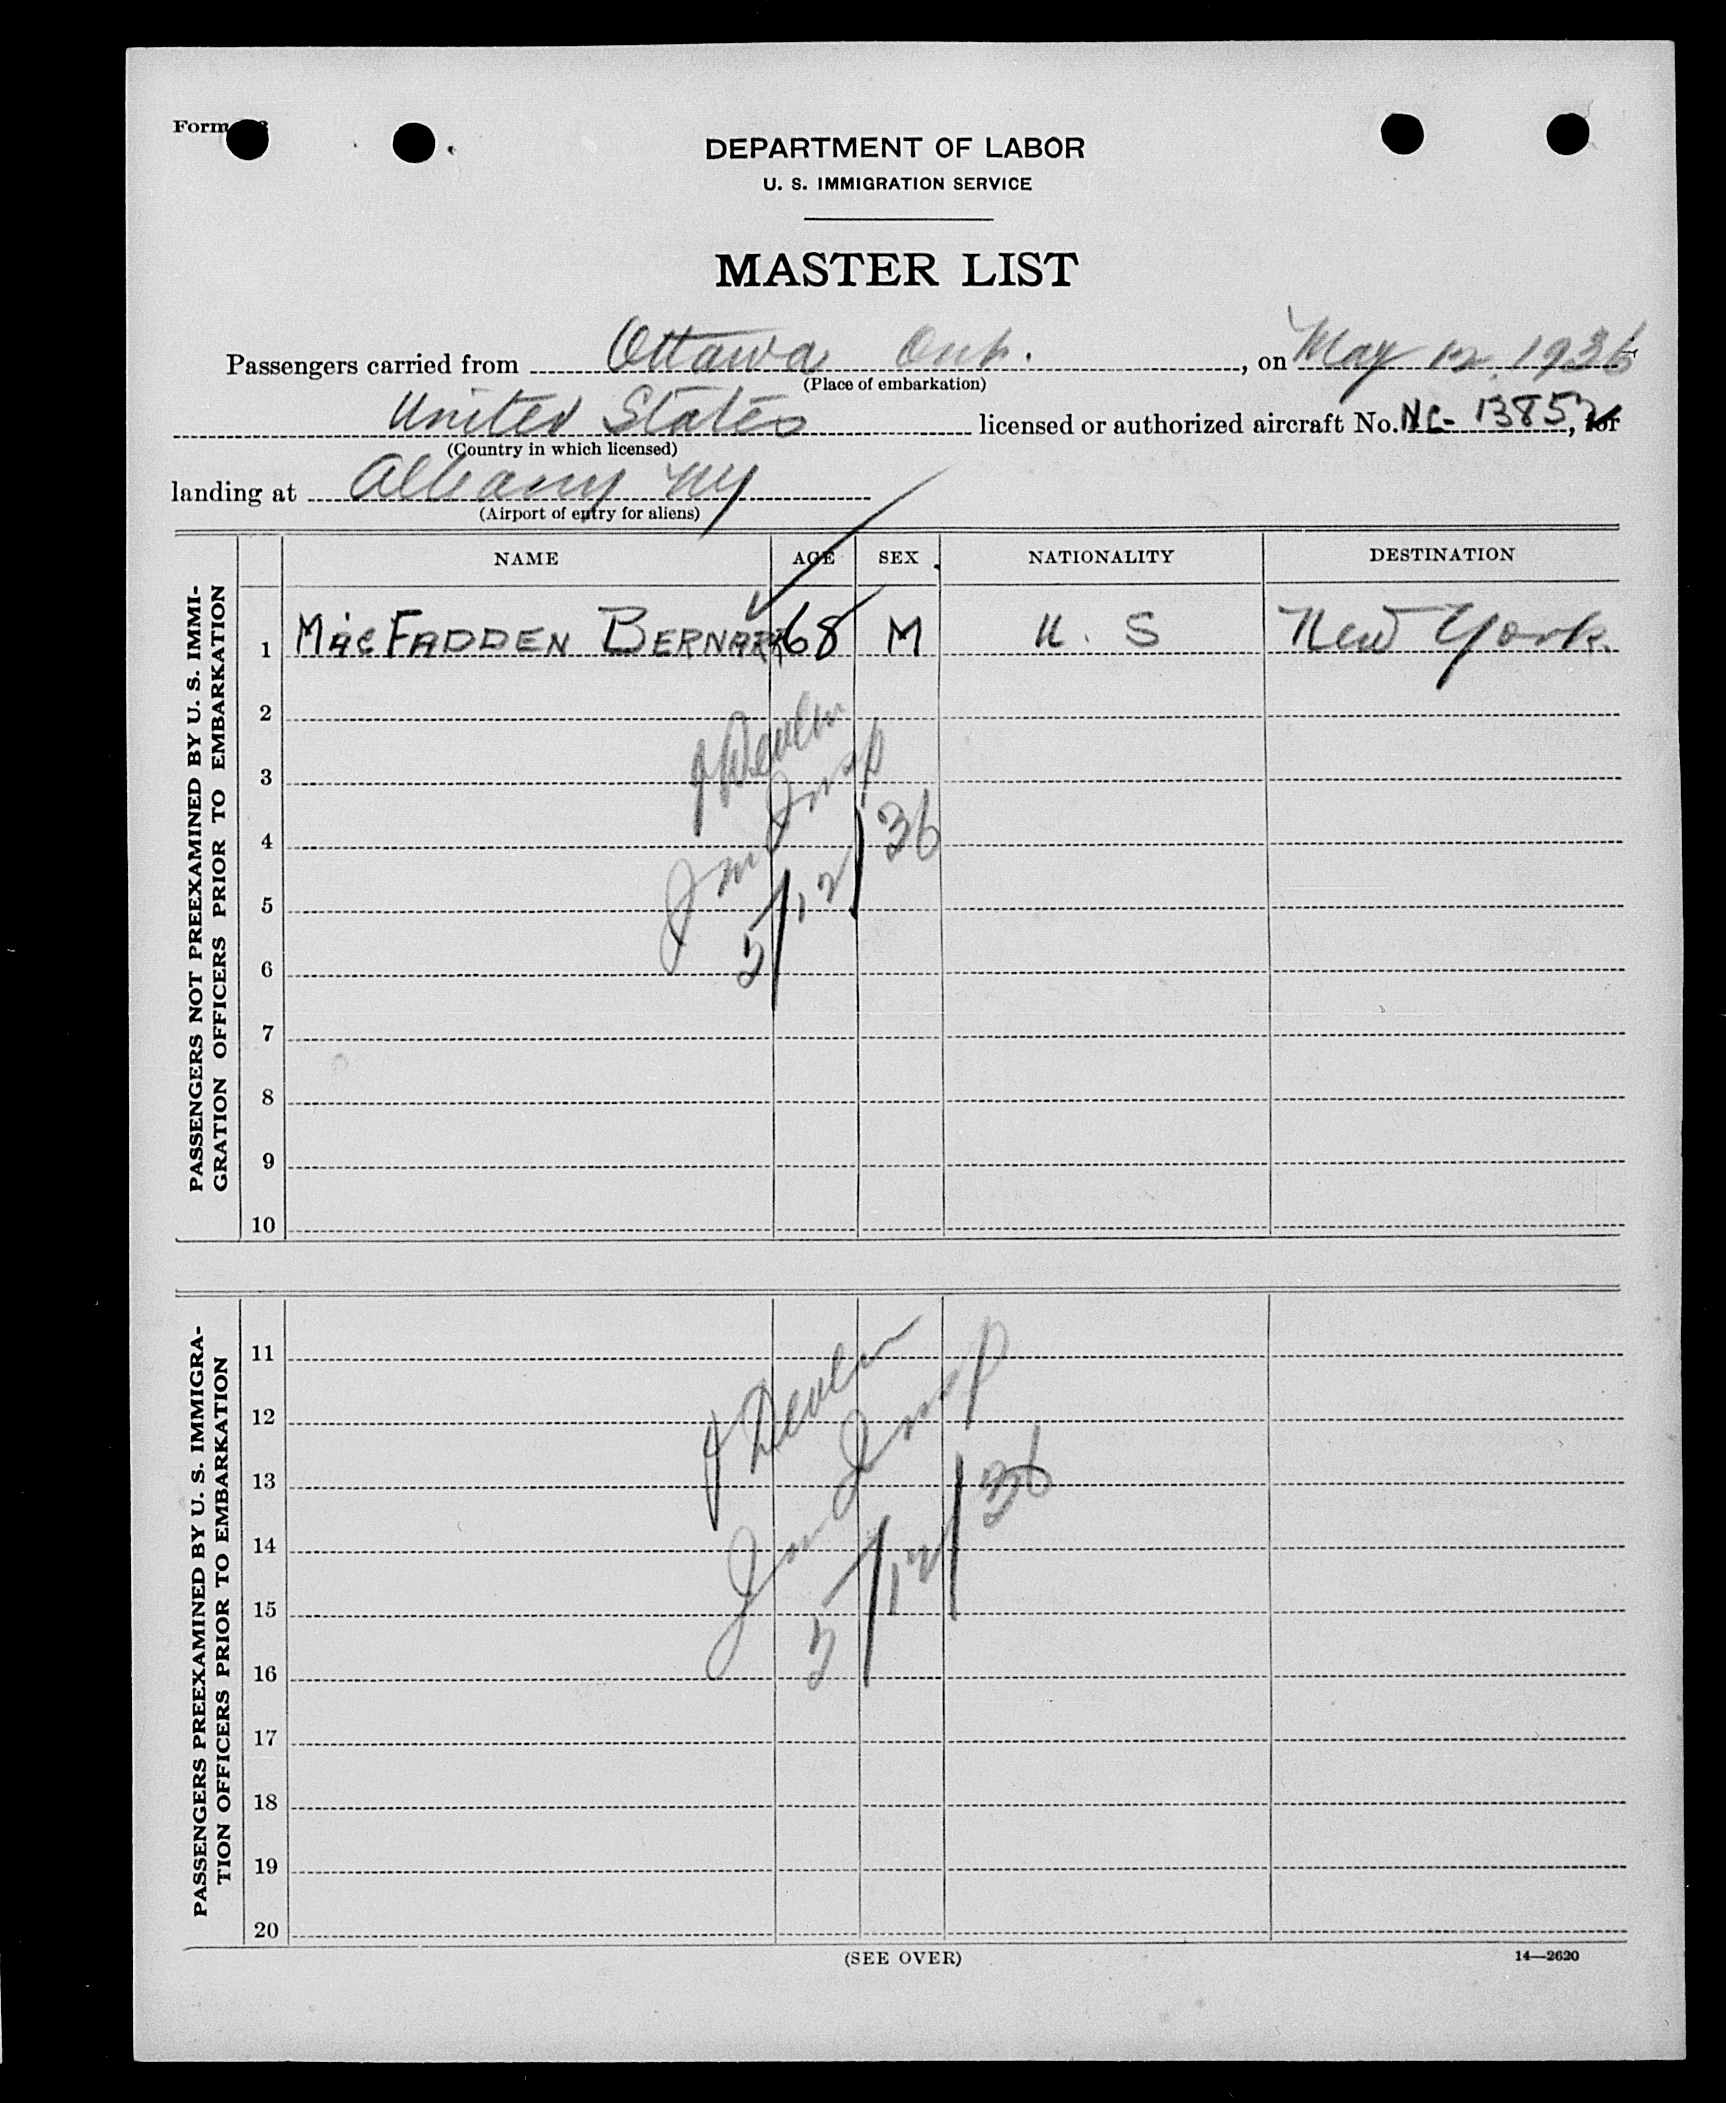 Form
DEPARTMENT OF LABOR
U. S. IMMIGRATION SERVICE
MASTER LIST
Passengers carried from Ottawa Ont. , on May 12, 1936
(Place of embarkation)
United States licensed or authorized aircraft No. NC-13852, for
(Country in which licensed)
landing at Albany NY
(Airport of entry for aliens)
NAME AGE SEX NATIONALITY DESTINATION
PASSENGERS NOT PREEXAMINED BY U. S. IMMI-
GRATION OFFICERS PRIOR TO EMBARKATION
1 MacFADDEN BERNARR 68 M U. S New York.
2
3
4
5
6
7
8
9
10
J Devlin
Imm Insp
5/12/36
PASSENGERS PREEXAMINED BY U. S. IMMIGRA-
TION OFFICERS PRIOR TO EMBARKATION
11
12
13
14
15
16
17
18
19
20
J Devlin
Imm Insp
5/12/36
(SEE OVER)
14—2620